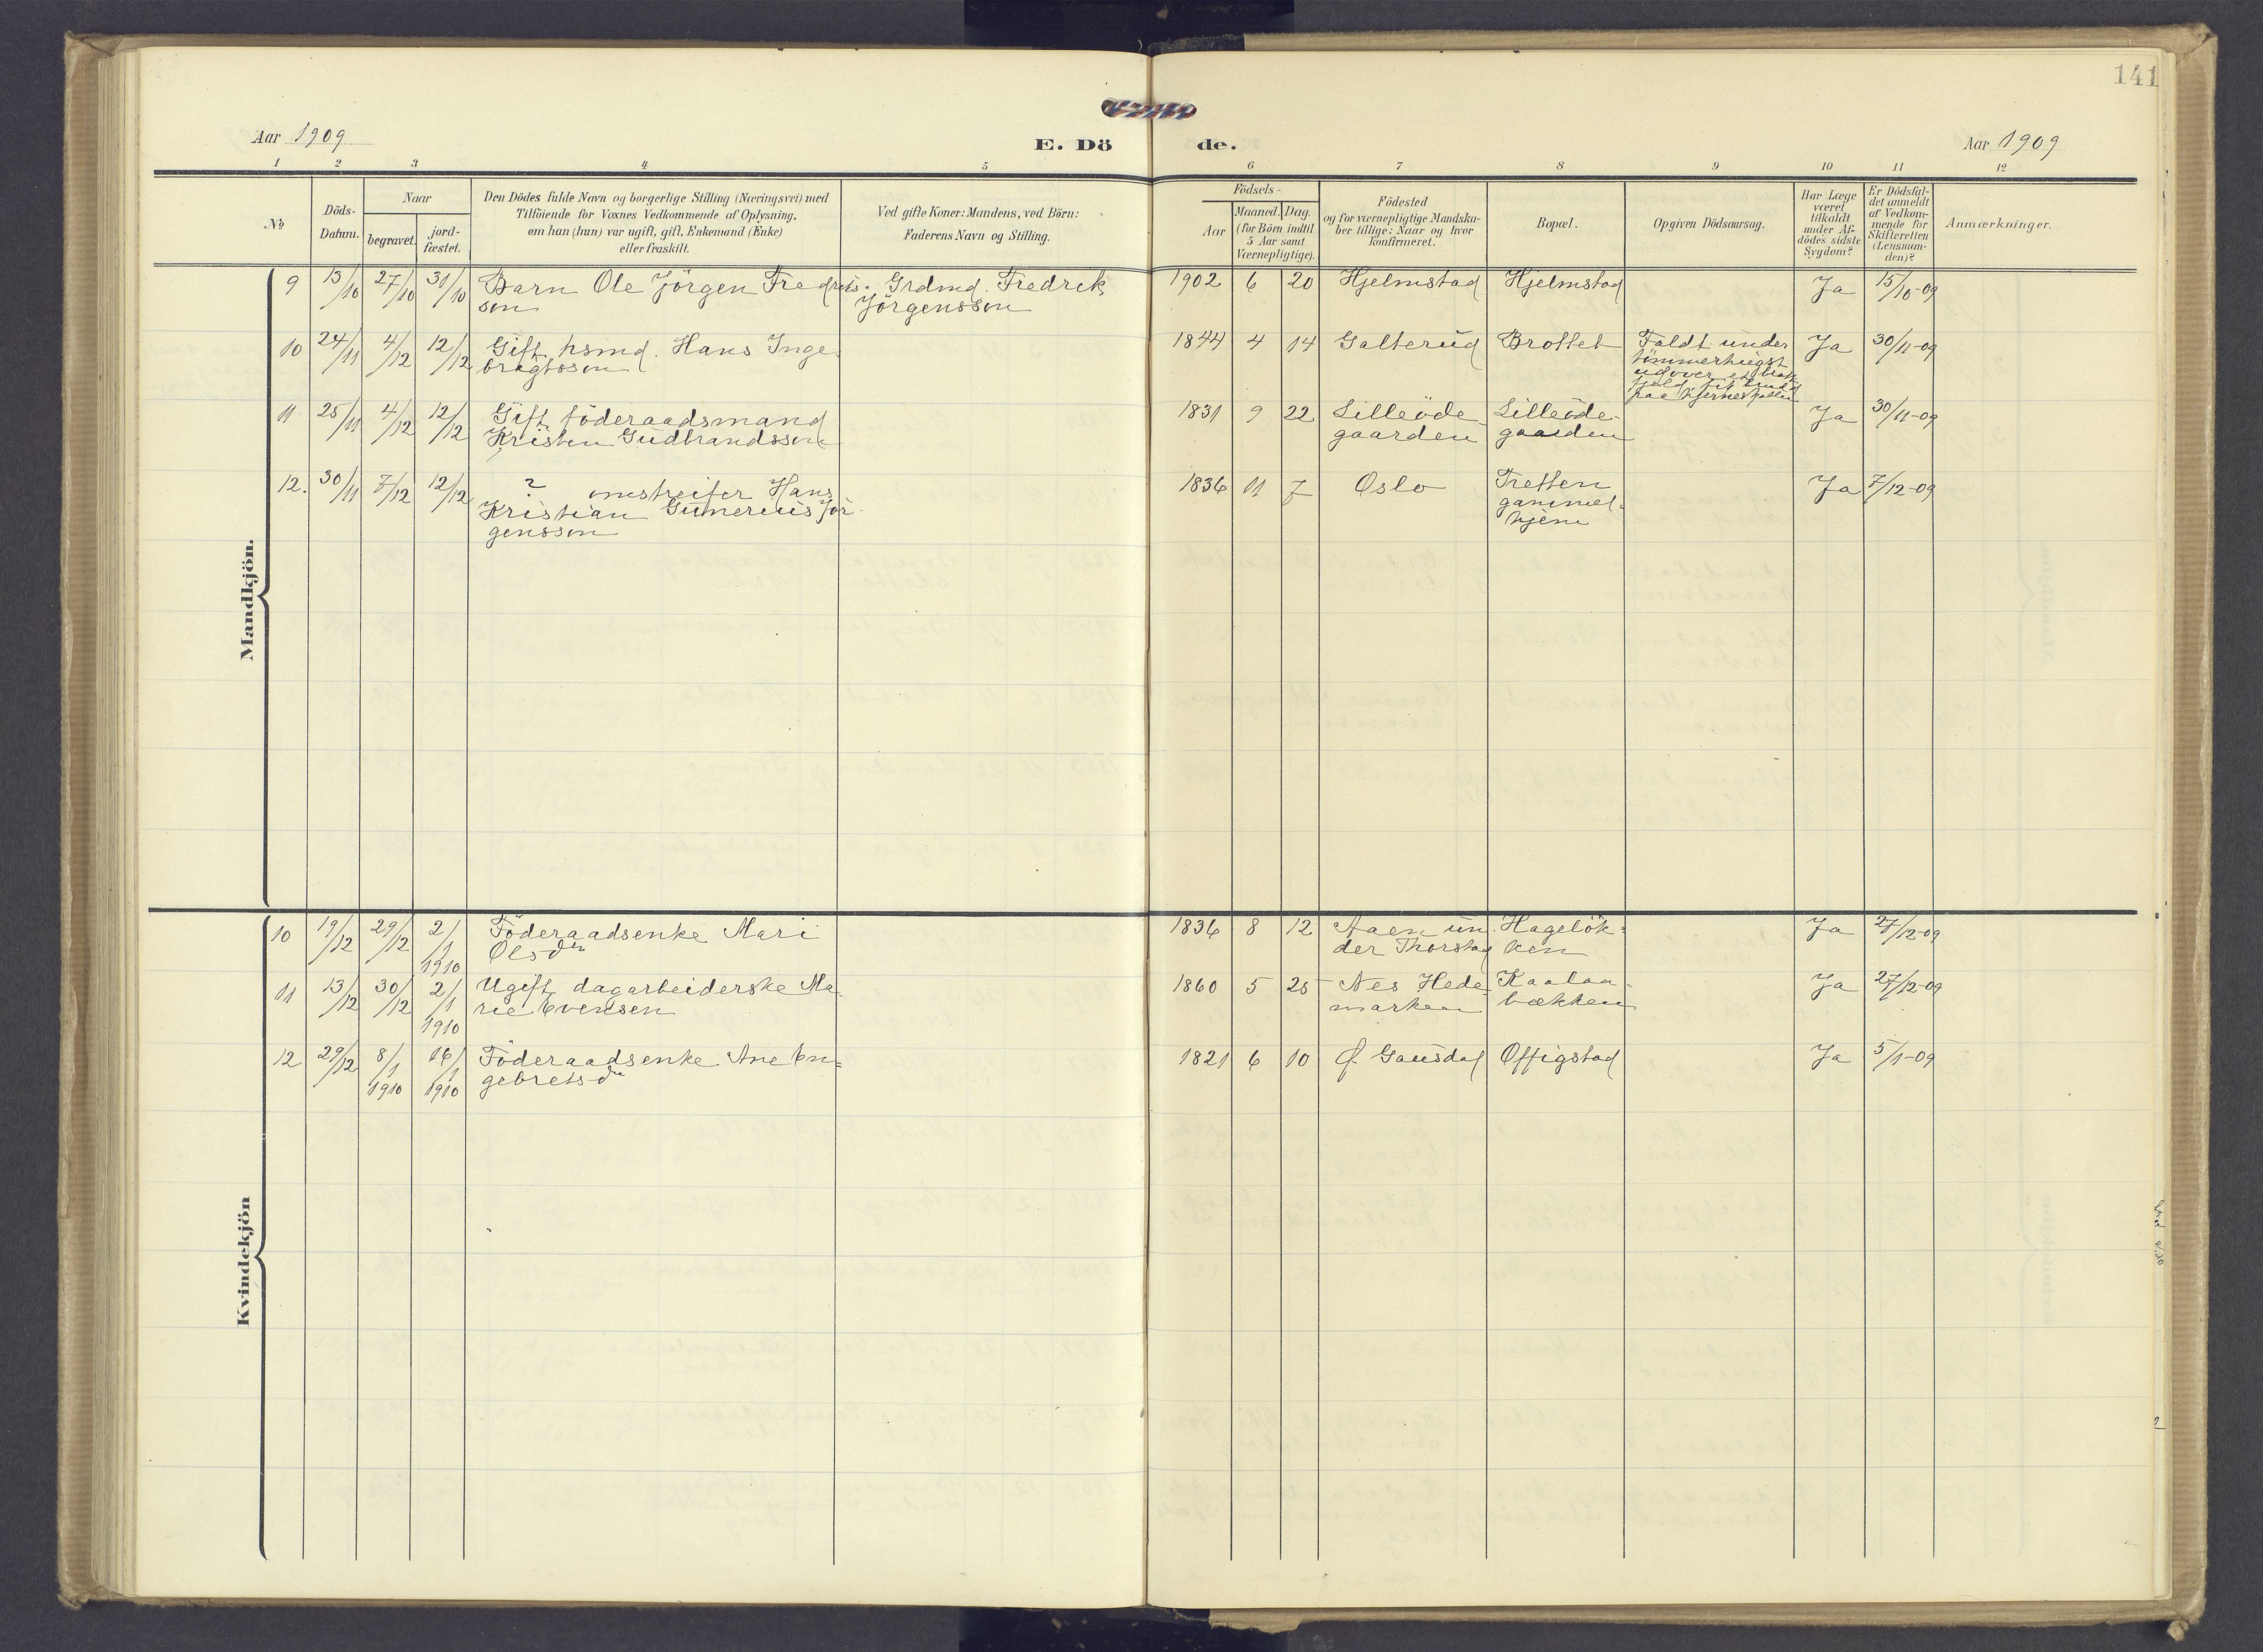 141
Aar 1909
E. Dö de.
Aar 1909
1 2 3 4 5 6 7 8 9 10 11 12
No
Döds-
Datum.
Naar
begravet.
jord-
fæstet.
Den Dödes fulde Navn og borgerlige Stilling (Næringsvei) med
Tilföiende for Voxnes Vedkommende af Oplysning,
om han (hun) var ugift, gift, Enkemand (Enke)
eller fraskilt.
Ved gifte Koner: Mandens, ved Börn:
Faderens Navn og Stilling.
Födsels-
Aar
Maaned. Dag.
(for Börn indtil
5 Aar samt
Værnepligtige).
Födested
og for værnepligtige Mandska-
ber tillige: Naar og hvor
konfirmeret.
Bopæl.
Opgiven Dödsaarsag.
Har Læge
været
tilkaldt
under Af-
dödes sidste
Sygdom?
Er Dödsfal-
det anmeldt
af Vedkom-
mende for
Skifteretten
(Lensman-
den)?
Anmærkninger.
Mandkjön.
9 13/10 27/10 31/10 Barn Ole Jörgen Fredriks- Grdmd. Fredrik 1902 6 20 Hjelmstad Hjelmstad Ja 15/10-09
son Jörgensson
10 24/11 4/12 12/12 Gift hsmd. Hans Inge- 1844 4 14 Galterud Brottet Faldt under Ja 30/11-09
brigtsson tömmerhugst
udover et
paa hjerneskallen
11 25/11 4/12 12/12 Gift föderaadsmand 1831 9 22 Lilleöde- Lilleöde- Ja 30/11-09
Kristen Gudbrandsson gaarden gaarden
12. 30/11 7/12 12/12 ? omstreifer Hans 1836 11 7 Oslo Tretten Ja 7/12-09
Kristian Gumerius Jör- gammel-
gensson hjem
Kvindekjön
10 19/12 29/12 2/1 1910 Föderaadsenke Mari 1836 8 12 Aaen un- Hagelök- Ja 27/12-09
Olsdtr der Thorstad ken
11 13/12 30/12 2/1 1910 Ugift dagarbeiderske Ma- 1860 5 25 Nes Hede- Kaalaa- Ja 27/12-09
rie Evensen marken bækken
12 29/12 8/1 1910 16/1 1910 Föderaadsenke Ane En- 1821 6 10 Ø. Gausdal Offigstad Ja 5/1-09
gebretsdtr